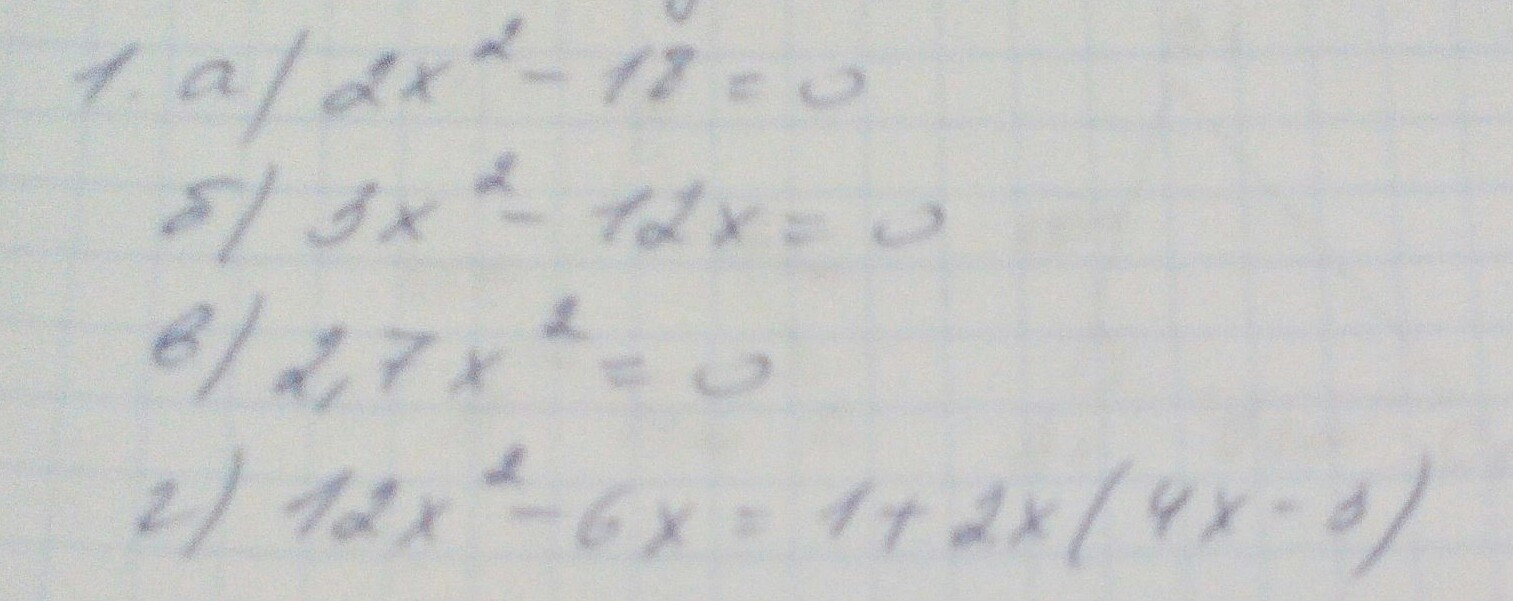 1. а) 2x² - 18 = 0
б) 3x² - 12x = 0
в) 2,7x² = 0
г) 12x² - 6x = 1 + 2x(4x - 3)